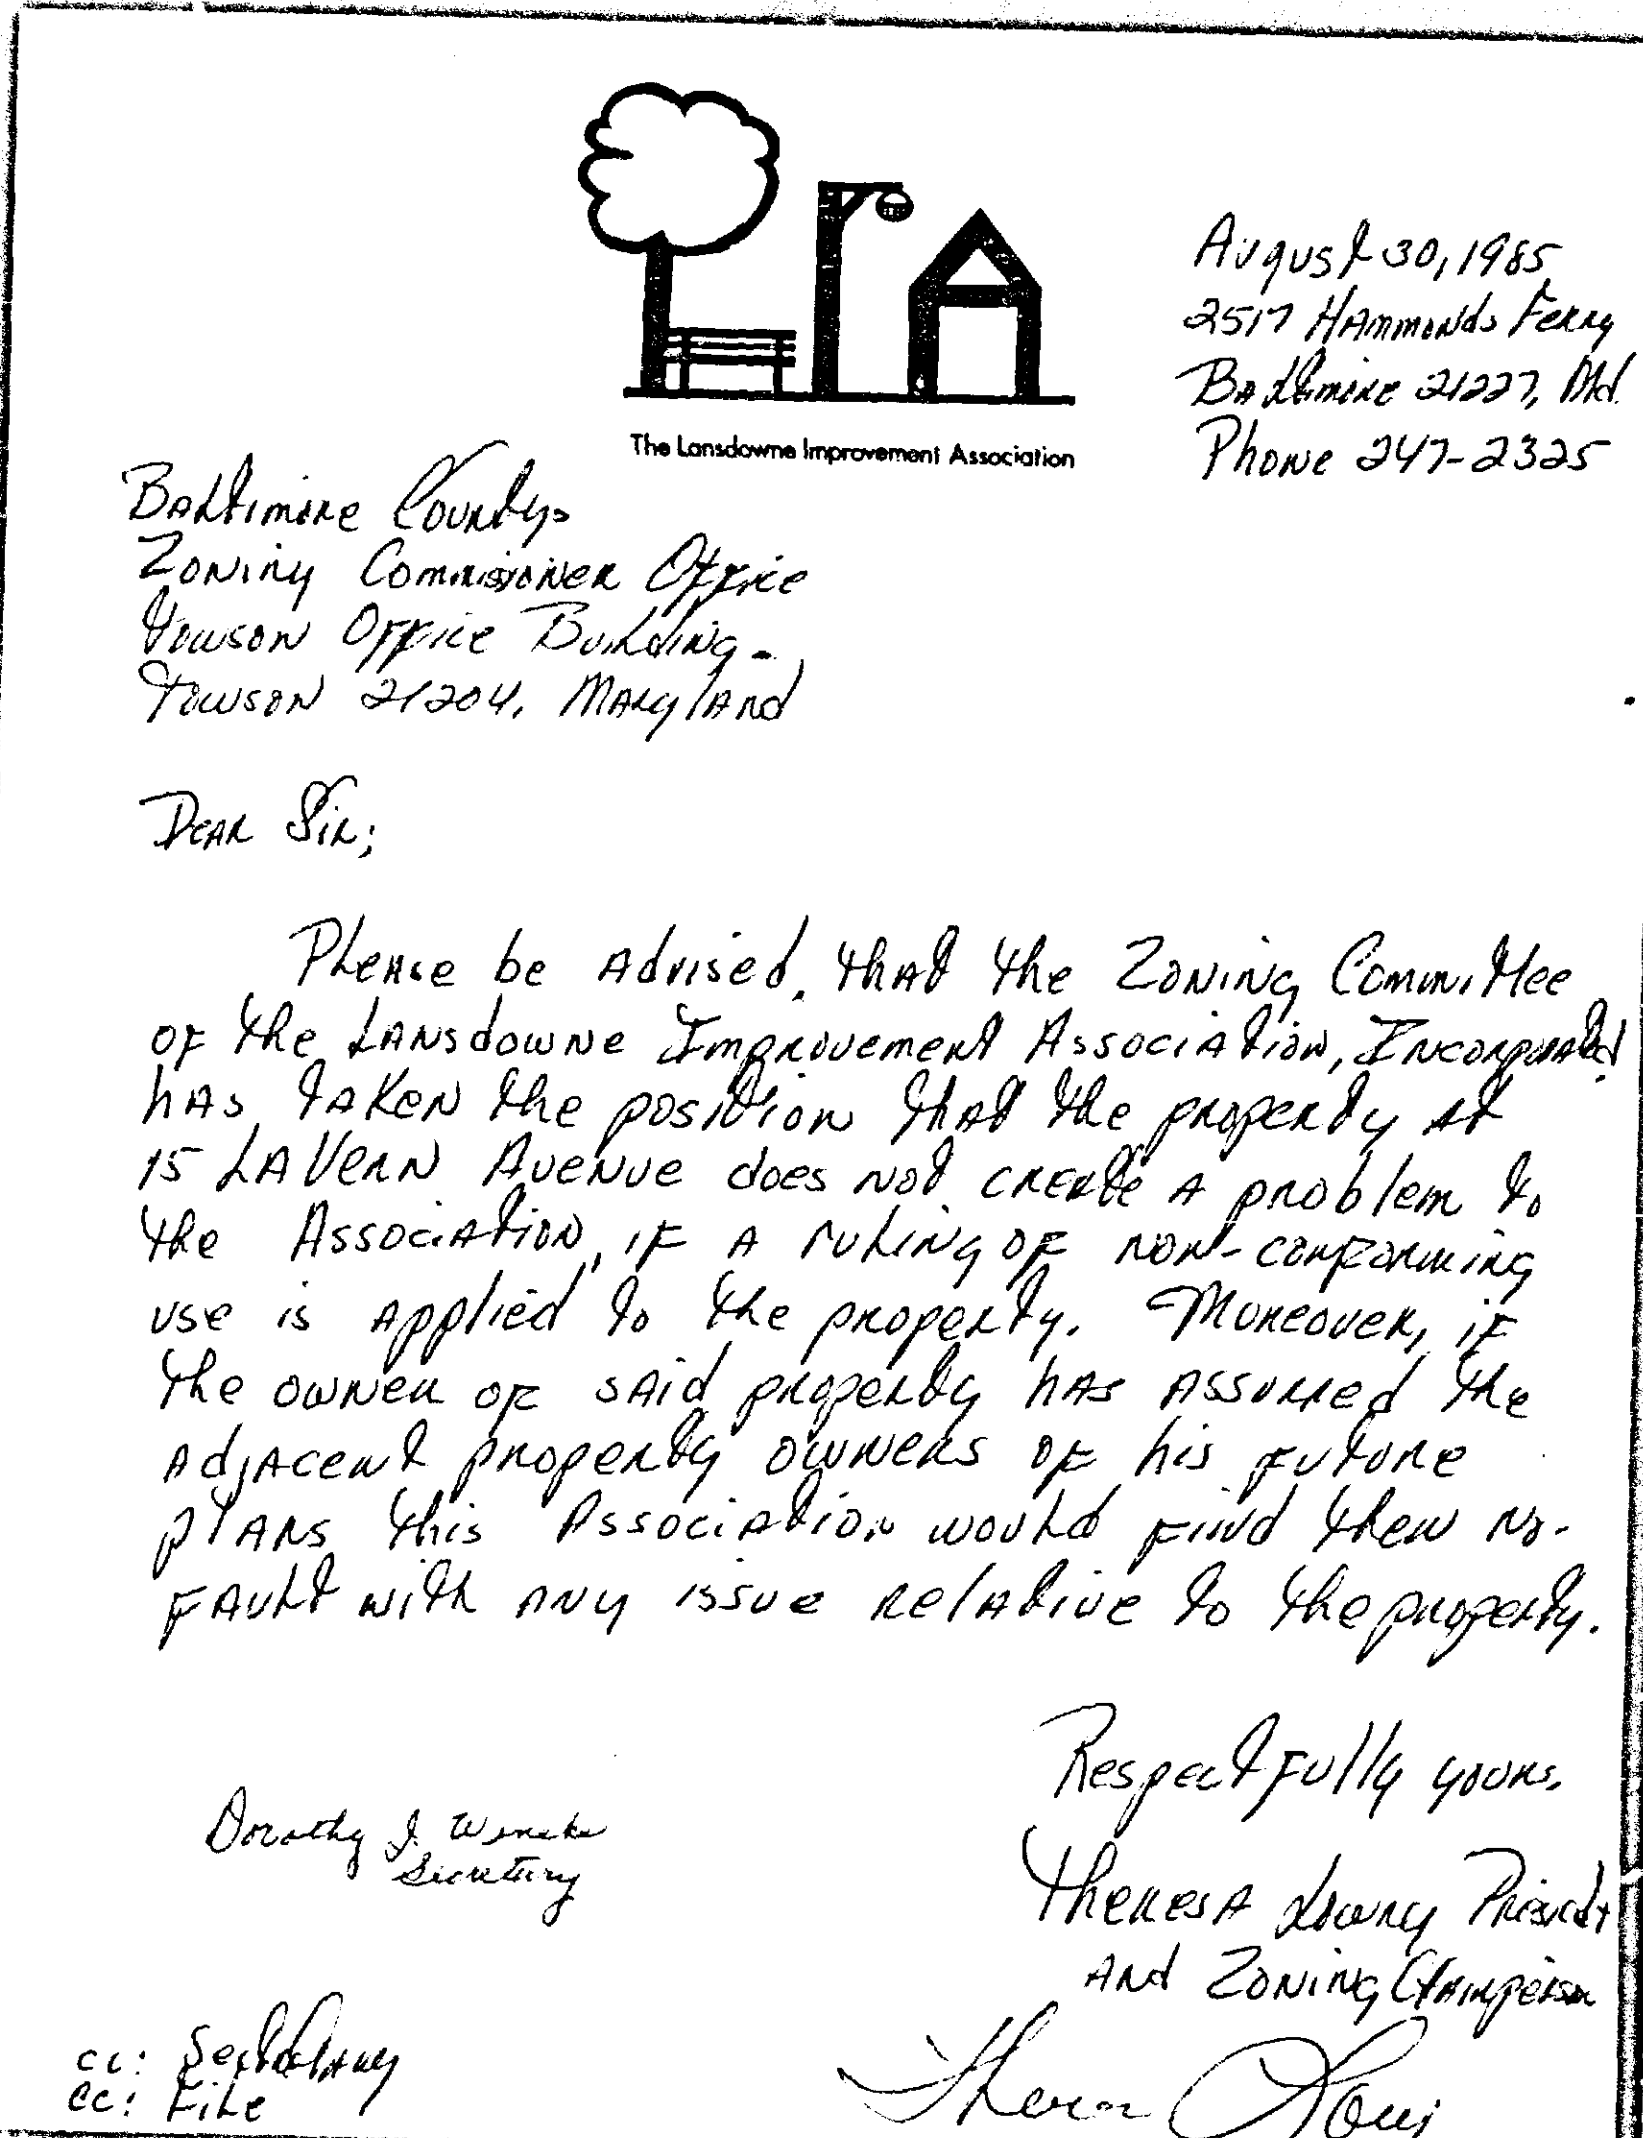 August 30, 1985
2517 Hammonds Ferry
Baltimore 21227, Md.
Phone 247-2325
The Lansdowne Improvement Association
Baltimore County-
Zoning Commissioner Office
Towson Office Building-
Towson 21204, Maryland
Dear Sir;
Please be advised, that the Zoning Committee
of the Lansdowne Improvement Association, Incorporated
has taken the position that the property at
15 LaVern Avenue does not create a problem to
the Association, if a ruling of non-conforming
use is applied to the property. Moreover, if
the owner of said property has assured the
adjacent property owners of his future
plans this Association would find then no-
fault with any issue relative to the property.
Respectfully yours,
Dorothy J.
Secretary
Theresa Lowry President
and Zoning Chairperson
cc: Secretary
cc: File